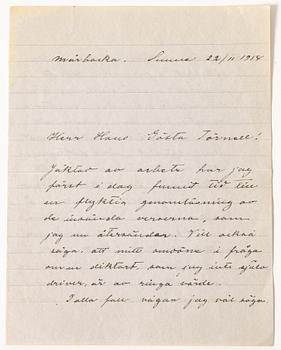 Mårbacka. Sunne 22/11 1914
Herr Hans Gösta Törnell!
Jäktad av arbete har jag
först i dag funnit tid till
en flyktig genomläsning av
de insända verserna, som
jag nu återsänder. Vill också
säga, att mitt omdöme i fråga
om en diktart, som jag inte själv
driver, är av ringa värde.
I alla fall vågar jag väl säga,